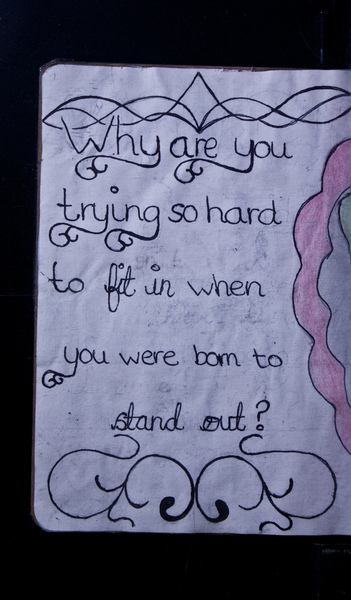 Why are you
trying so hard
to fit in when
you were born to
stand out?